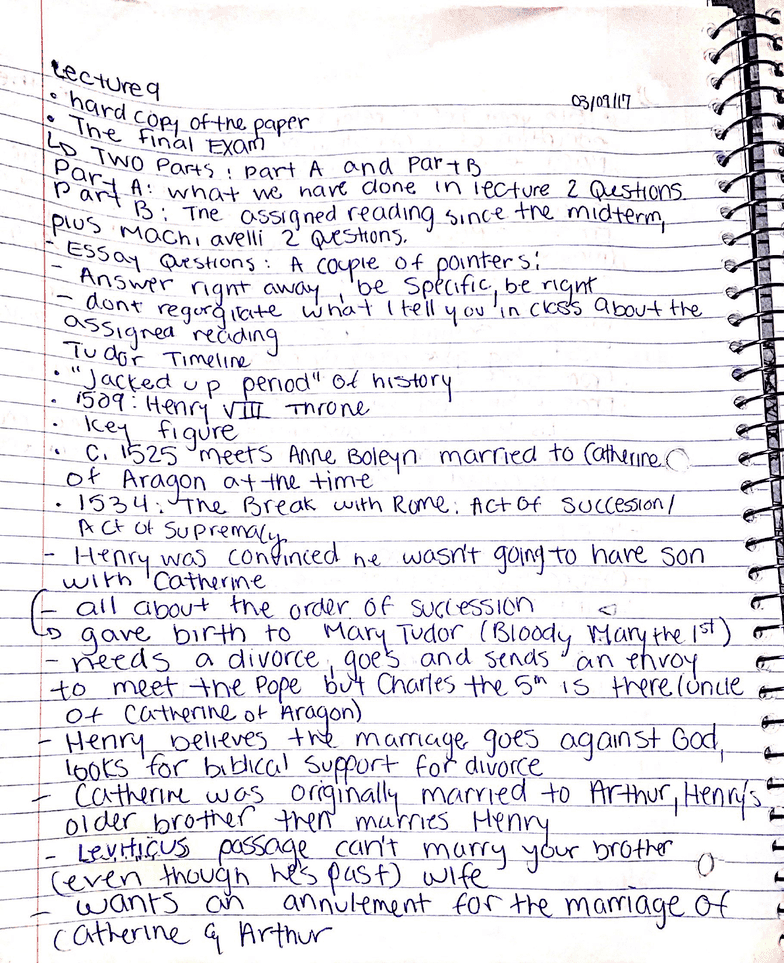 Lecture 9
03/09/17
• hard copy of the paper
• The final Exam
↳ Two Parts: Part A and Part B
Part A: what we have done in lecture 2 Questions
Part B: The assigned reading since the midterm,
plus Machiavelli 2 Questions.
- Essay Questions: A couple of pointers:
- Answer right away, be specific, be right
- dont regorgitate what I tell you in class about the
assigned reading
Tudor Timeline
• "Jacked up period" of history
• 1509: Henry VIII Throne
• Key figure
• C. 1525 meets Anne Boleyn married to Catherine
of Aragon at the time
• 1534: The Break with Rome: Act of Succession/
Act of Supremacy
- Henry was convinced he wasn't going to have son
with Catherine
- all about the order of succession
↳ gave birth to Mary Tudor (Bloody Mary the 1st)
- needs a divorce, goes and sends an envoy
to meet the Pope but Charles the 5th is there (uncle
of Catherine of Aragon)
- Henry believes the marriage goes against God,
looks for biblical support for divorce
- Catherine was originally married to Arthur, Henry's
older brother then marries Henry
- Leviticus passage can't marry your brother
(even though he's past) wife
- wants an annulement for the marriage of
Catherine & Arthur